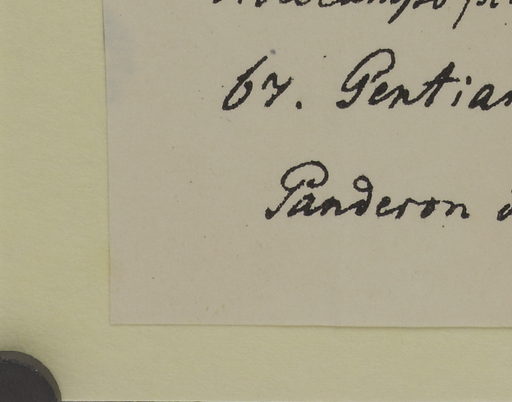 67. Gentian
Panderon